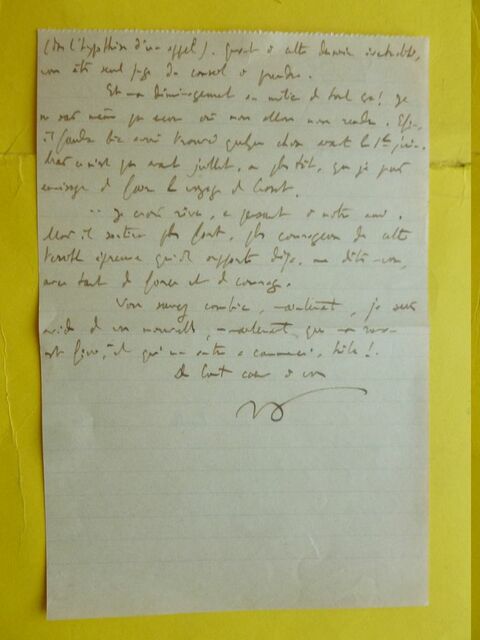 (dans l'hypothèse d'un appel). Quant à cette dernière éventualité,
vous êtes seul juge du conseil à prendre.
Et mon déménagement au milieu de tout ça! Je
ne sais même pas encore où nous allons nous rendre.
il faudra bien avoir trouvé quelque chose avant le 1er juin.
Mais ce n'est pas avant juillet, au plus tôt, que je puis
envisager de faire le voyage de
Je crois rêver, en pensant à notre ami.
Mais il sortira plus fort, plus courageux de cette
terrible épreuve qu'il supporte déjà, me dites-vous,
avec tant de force et de courage.
Vous savez combien, maintenant, je suis
avide de vos nouvelles, maintenant que
est finie, et qu'un autre a commencé, hélas!
De tout cœur à vous